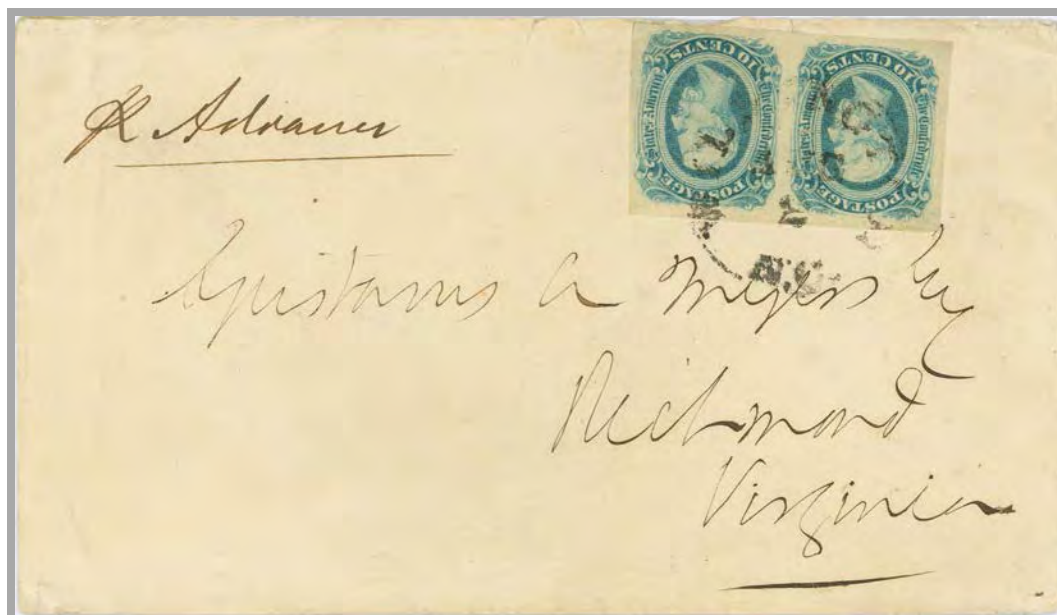 pr Advance
10 CENTS
The Confederate States America
POSTAGE
10 CENTS
The Confederate States America
POSTAGE
N.C.
Gustavus A Myers Esq
Richmond
Virginia